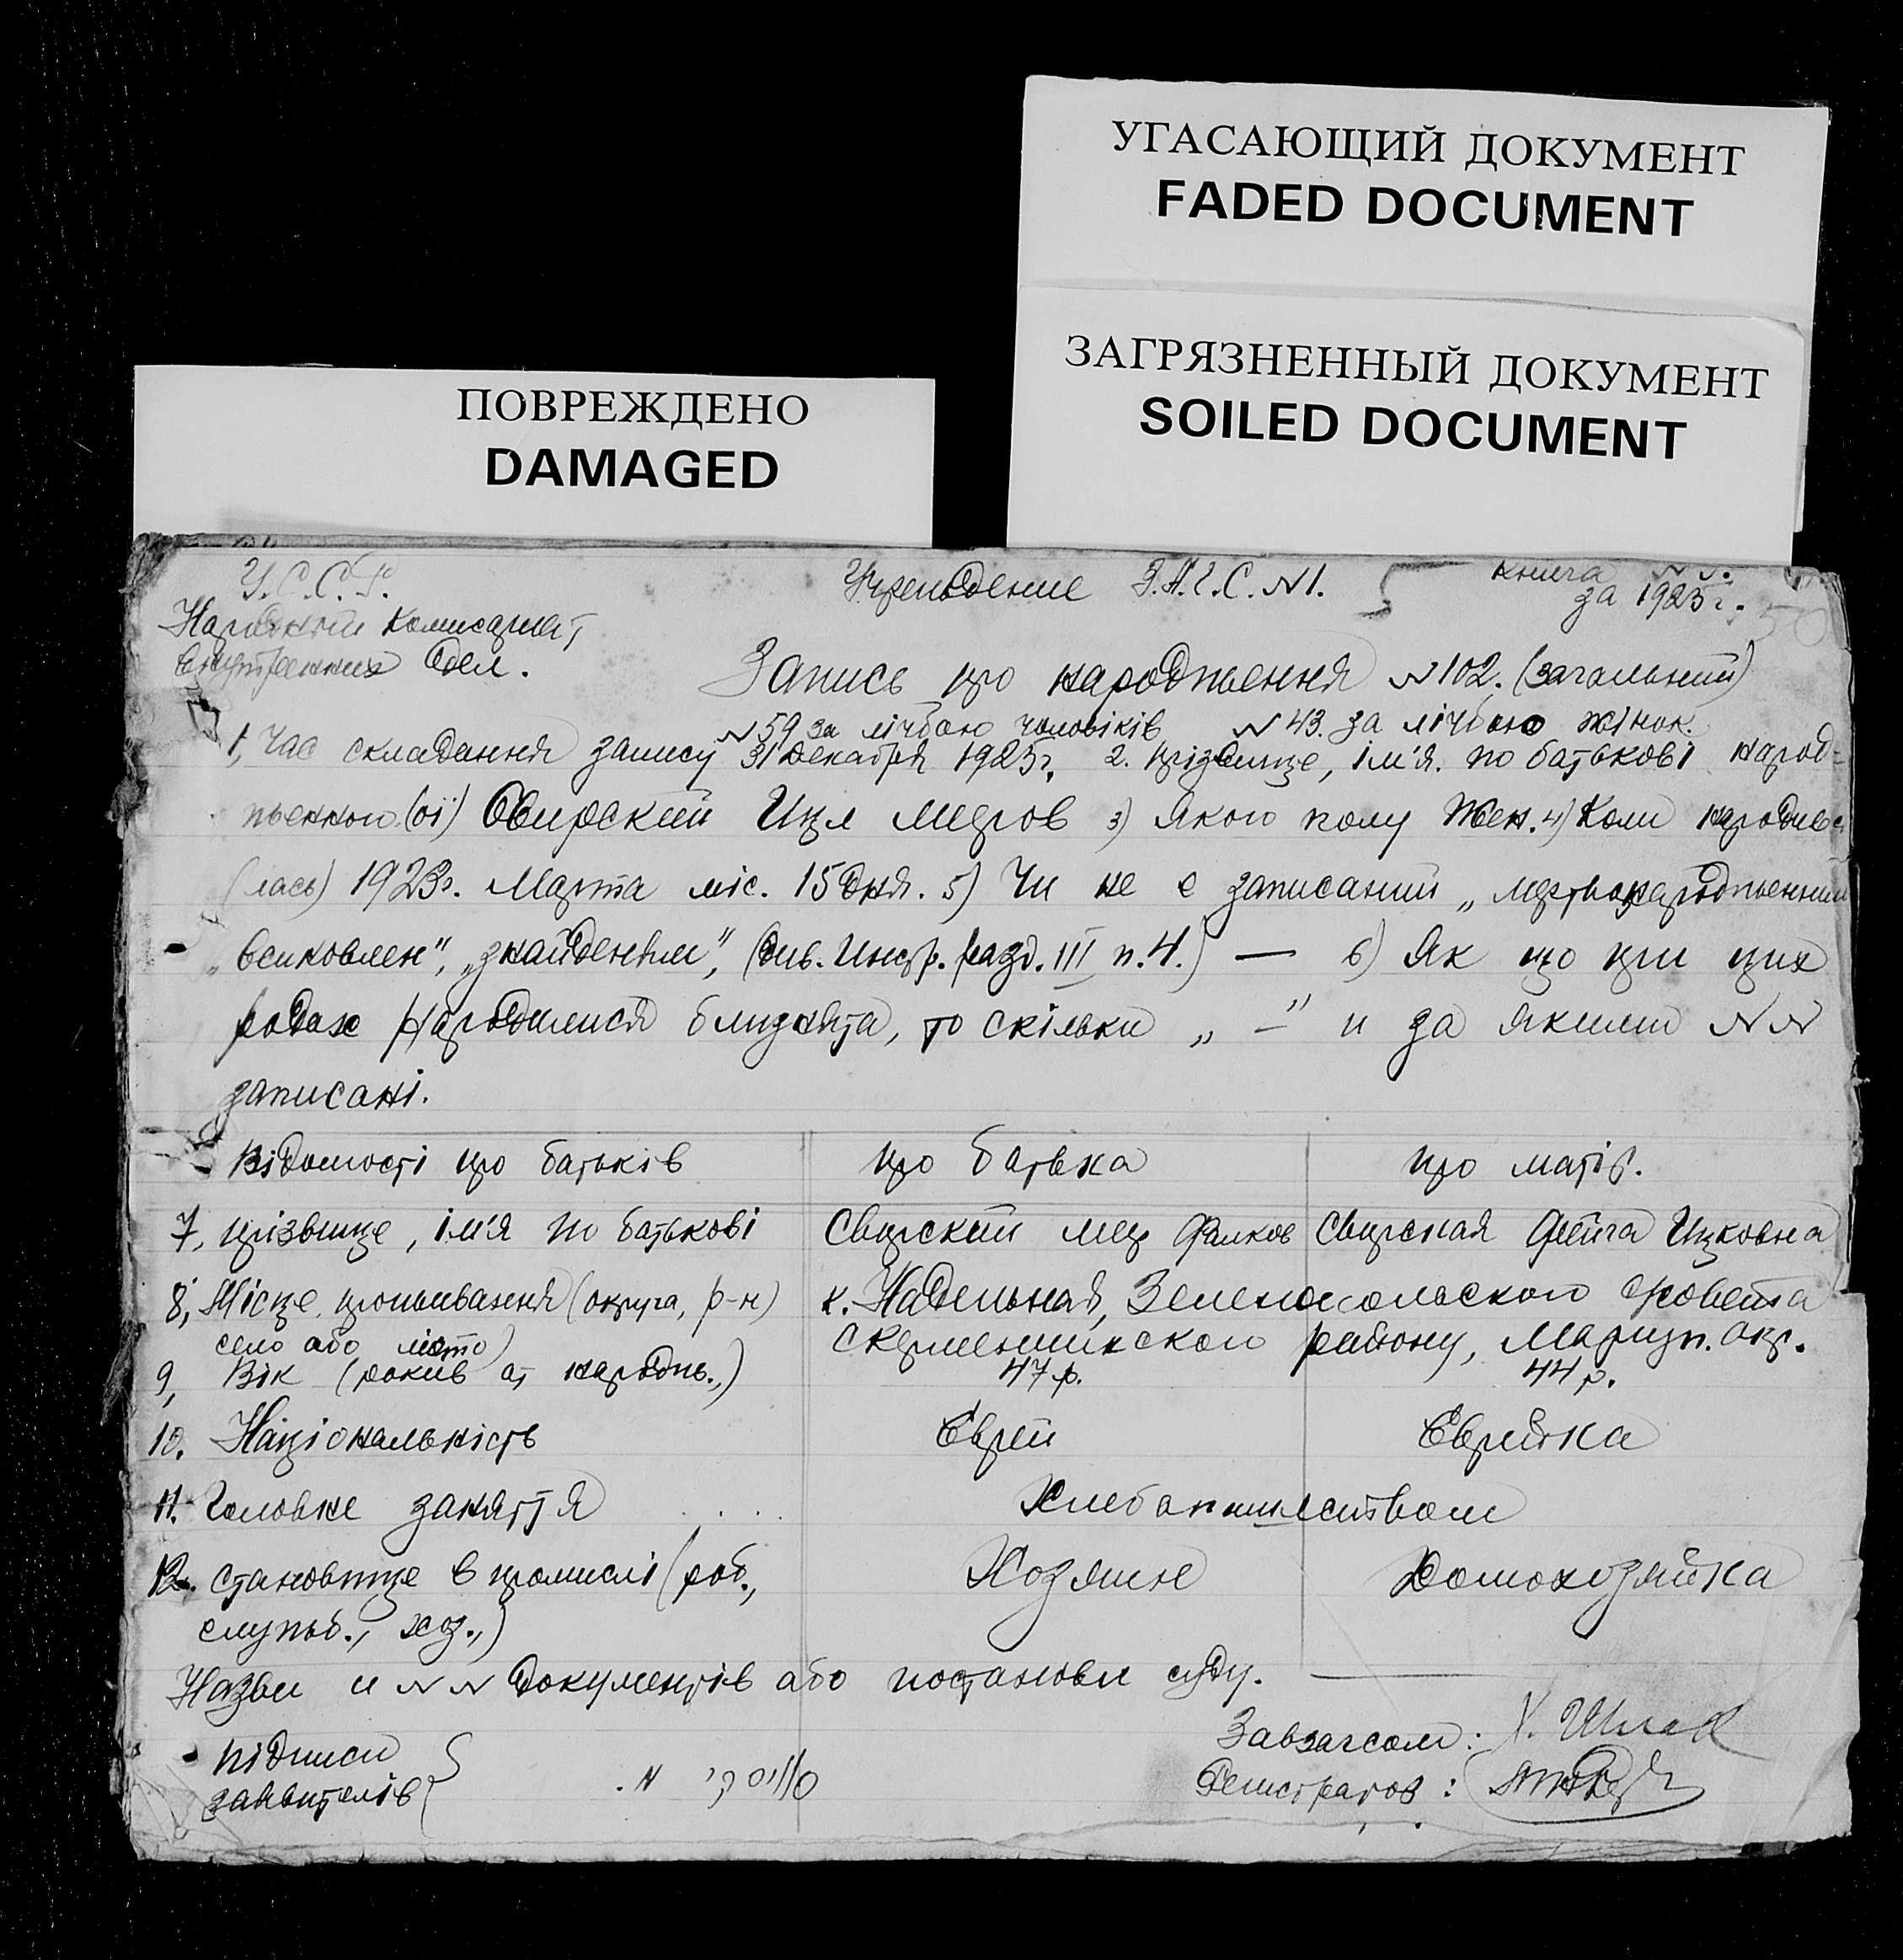 УГАСАЮЩИЙ ДОКУМЕНТ
FADED DOCUMENT
ЗАГРЯЗНЕННЫЙ ДОКУМЕНТ
SOILED DOCUMENT
ПОВРЕЖДЕНО
DAMAGED
У.С.С.Р. Учреждение З.А.Г.С. №1. Книга
за 1923 г.
Народний Комисариат
Внутренних Дел.
Запись про народження №102. (загальний)
№59 за лічбою чоловіків №43. за лічбою жінок.
1, Час складання запису 31 декабря 1923 г, 2. прізвище, ім'я. по батькові народ=
женного (ої) Свирский Ицл Мееров 3) якого полу Жен. 4) Коли народивс
(лась) 1923 г. Марта міс. 15 дня. 5) Чи не е записаний „ мертвонародженним
„ венковлен", „знайденым", (див. Инстр. разд. III п. 4.) — 6) Як що при цих
родах народилися близнята, то скільки „ — " и за якими № №
записані.
Відомості про батьків про батька про матір.
7, прізвище, ім'я по батькові Свирский Меер Фалков Свирская Фейга Ицковна
8, Місце проживання (округа, р-н) к. Надежная, Зеленопольского совета
село або місто) Скерменчикского району, Мариуп. окр.
9, Вік (рокив от народж.,) 47 р. 44 р.
10. Національність Еврей Еврейка
11. Головне заняття . . . . Хлебопашеством
12. Становище в промислі (роб., Хозяин Домохозяйка
служб., хоз.,)
Назви и № № документів або постанови суду. —
підписи Завзагсом:
заявителів Регистратов: